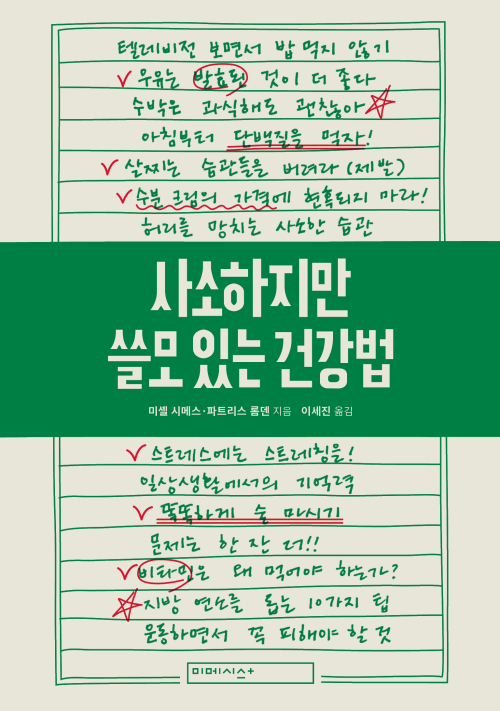 텔레비전 보면서 밥 먹지 않기
우유는 발효된 것이 더 좋다
수박은 과식해도 괜찮아
아침부터 단백질을 먹자!
살찌는 습관들을 버려라 (제발)
수분 크림의 가격에 현혹되지 마라!
허리를 망치는 사소한 습관
사소하지만
쓸모 있는 건강법
미셸 시메스·파트리스 롬덴 지음 이세진 옮김
스트레스에는 스트레칭을!
일상생활에서의 기억력
똑똑하게 술 마시기
문제는 한 잔 더!!
비타민은 왜 먹어야 하는가?
지방 연소를 돕는 10가지 팁
운동하면서 꼭 피해야 할 것
미메시스+